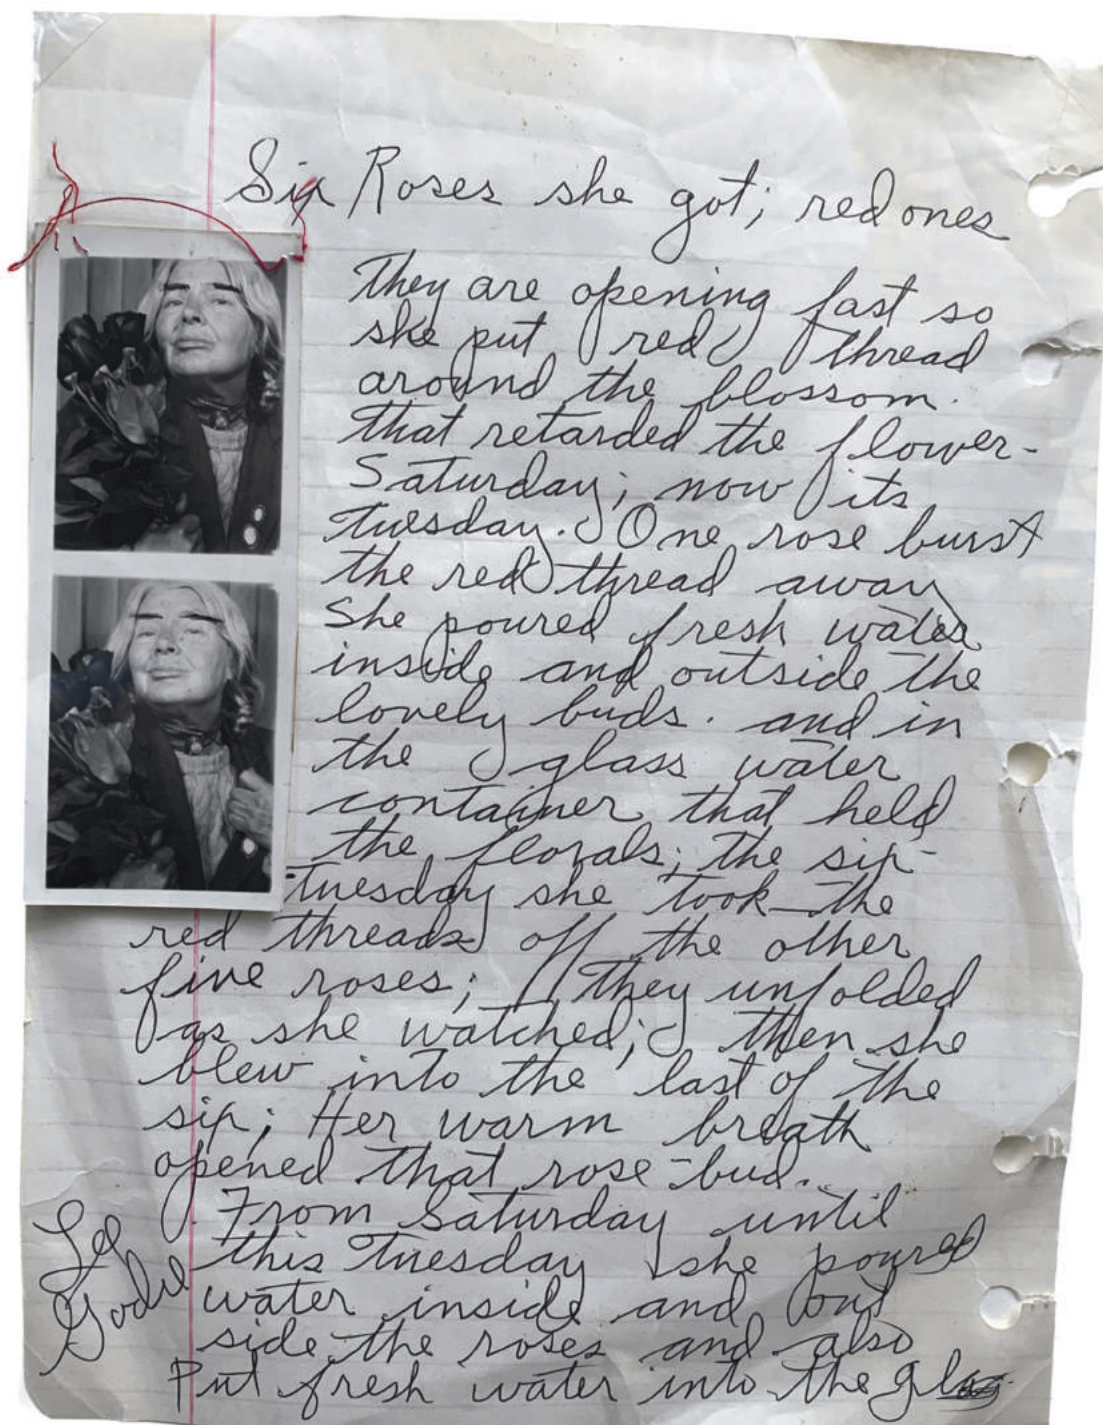 Six Roses she got; red ones
They are opening fast so
she put red thread
around the blossom.
That retarded the flower-
Saturday; now its
Tuesday. One rose burst
the red thread away
She poured fresh water
inside and outside the
lovely buds. and in
the glass water
container that held
the florals; the six-
Tuesday she took the
red threads off the other
five roses; They unfolded
as she watched; then she
blew into the last of the
six; Her warm breath
opened that rose-bud..
From Saturday until
this Tuesday she poured
water inside and out
side the roses and also
Put fresh water into the glass
Lee
Godie